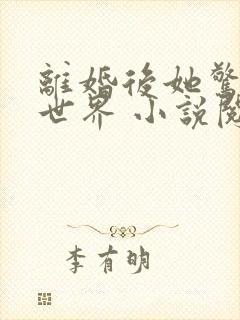 離婚後她驚
世界 小說閱
李有明